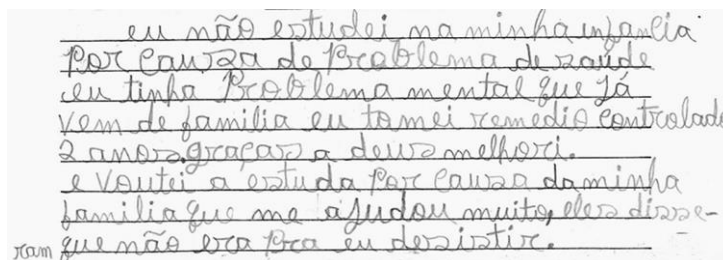 eu não estudei na minha infancia
Por causa de Problema de saúde
eu tinha Problema mental que já
vem de familia eu tomei remedio controlado
2 anos. graças a deus melhori.
e voutei a estuda Por causa da minha
familia que me ajudou muito, eles disse-
ram que não era pra eu desistir.